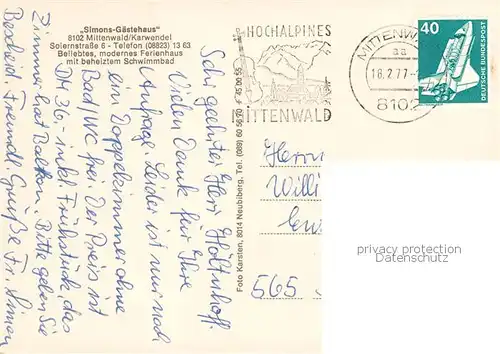 "Simons-Gästehaus"
8102 Mittenwald/Karwendel
Soiernstraße 6 - Telefon (08823) 13 63
Beliebtes, modernes Ferienhaus
mit beheiztem Schwimmbad
Sehr geehrter Herr Höltenhoff.
Vielen Dank für Ihre
Anfrage. Leider ist nur noch
ein Doppelzimmer ohne
Bad/WC frei. Der Preis ist
DM 36.- inkl. Frühstück, das
Zimmer hat Balkon. Bitte geben Sie
Bescheid. Freundl. Grüße Fr. Simon
Foto Karsten, 8014 Neubiberg, Tel. (089) 60 56 20 + 45 00 56
HOCHALPINES
MITTENWALD
MITTENWALD
aa
18.2.77
8102
40
DEUTSCHE BUNDESPOST
Herrn
Willi
565
privacy protection
Datenschutz